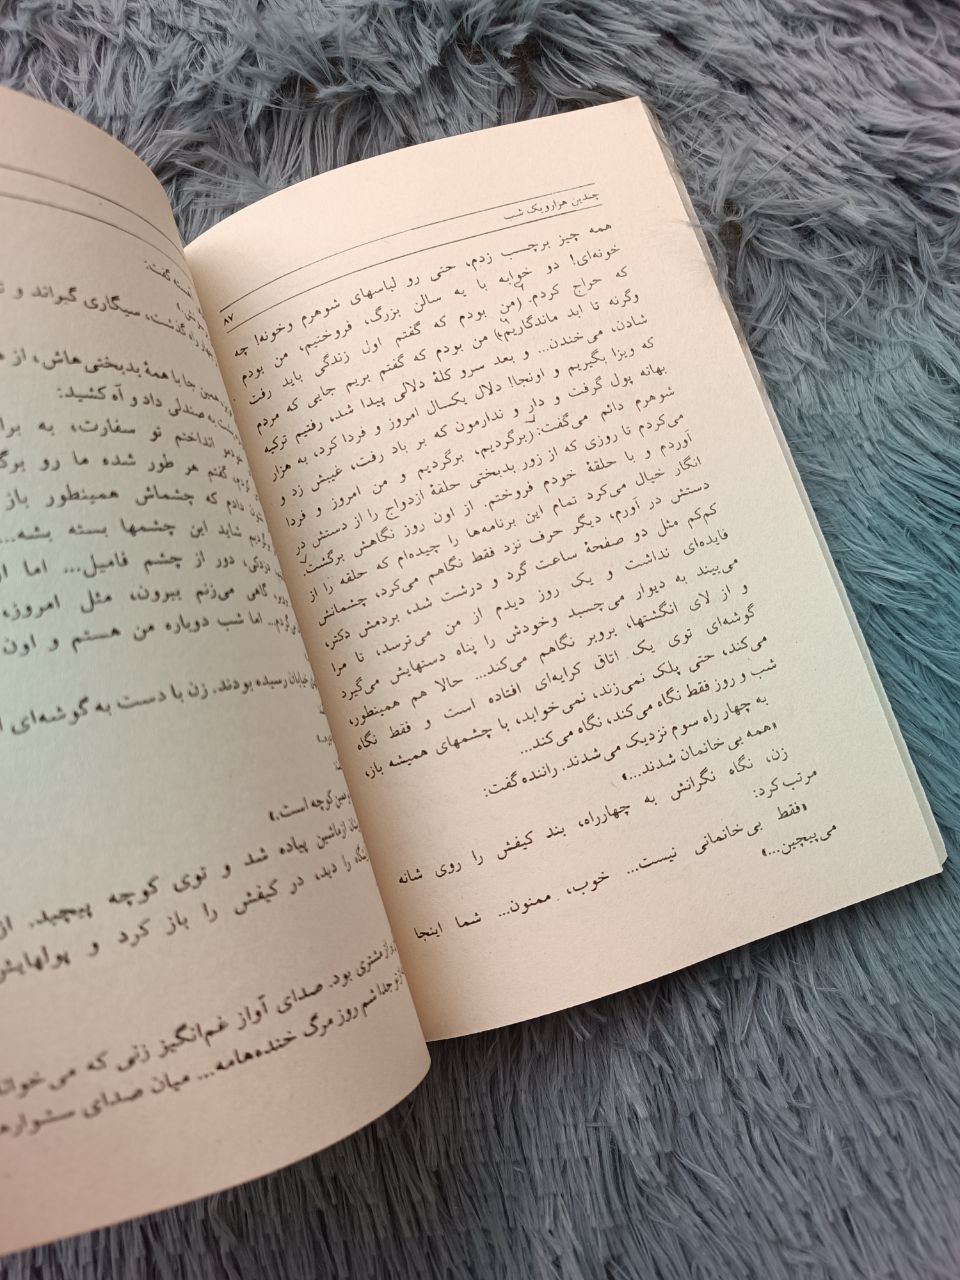 چندین هزارویک شب
۸۷
همه چیز برچسب زدم، حتی رو لباسهای شوهرم وخونه! چه
خونه‌ای! دو خوابه با یه سالن بزرگ، فروختیم، من بودم
که حراج کردم. (من بودم که گفتم اول زندگی باید رفت
وگرنه تا ابد ماندگاریم) من بودم که گفتم بریم جایی که مردم
شادن، می‌خندن... و بعد سرو کلهٔ دلالی پیدا شد، رفتیم ترکیه
که ویزا بگیریم و اونجا! دلال یکسال امروز و فردا کرد، به هزار
بهانه پول گرفت و دار و ندارمون که بر باد رفت، غیبش زد و
شوهرم دائم می‌گفت: برگردیم، برگردیم و من امروز و فردا
می‌کردم تا روزی که از زور بدبختی حلقهٔ ازدواج را از دستش در
آوردم و با حلقهٔ خودم فروختم. از اون روز نگاهش برگشت.
انگار خیال می‌کرد تمام این برنامه‌ها را چیده‌ام که حلقه را از
دستش در آورم، دیگر حرف نزد فقط نگاهم می‌کرد، چشمانش
کم‌کم مثل دو صفحهٔ ساعت گرد و درشت شد، بردمش دکتر،
فایده‌ای نداشت و یک روز دیدم از من می‌ترسد، تا مرا
می‌بیند به دیوار می‌چسبد وخودش را پناه دستهایش می‌گیرد
و از لای انگشتها، بروبر نگاهم می‌کند... حالا هم همینطور،
گوشه‌ای توی یک اتاق کرایه‌ای افتاده است و فقط نگاه
می‌کند، حتی پلک نمی‌زند، نمی‌خوابد، با چشمهای همیشه باز،
شب و روز فقط نگاه می‌کند، نگاه می‌کند...
به چهار راه سوم نزدیک می‌شدند. راننده گفت:
«همه بی‌خانمان شدند...»
زن، نگاه نگرانش به چهارراه، بند کیفش را روی شانه
مرتب کرد:
«فقط بی‌خانمانی نیست... خوب، ممنون... شما اینجا
می‌پیچین...»
گفت:
راه گذشت، سیگاری گیراند و
همین جا با همهٔ بدبختی هاش، از
به صندلی داد و آه کشید:
انداختم تو سفارت، به
گفتم هر طور شده ما رو
دادم که چشماش همینطور باز
شاید این چشمها بسته بشه...
دور از چشم فامیل... اما
گاهی می‌زنم بیرون، مثل امروزه،
اما شب دوباره من هستم و اون
خیابان رسیده بودند. زن با دست به گوشه‌ای
کوچه است.»
ازماشین پیاده شد و توی کوچه پیچید. از
را دید، در کیفش را باز کرد و پولهایش
مشتری بود. صدای آواز غم‌انگیز زنی که می‌خواند
جداشم روز مرگ خنده‌هامه... میان صدای